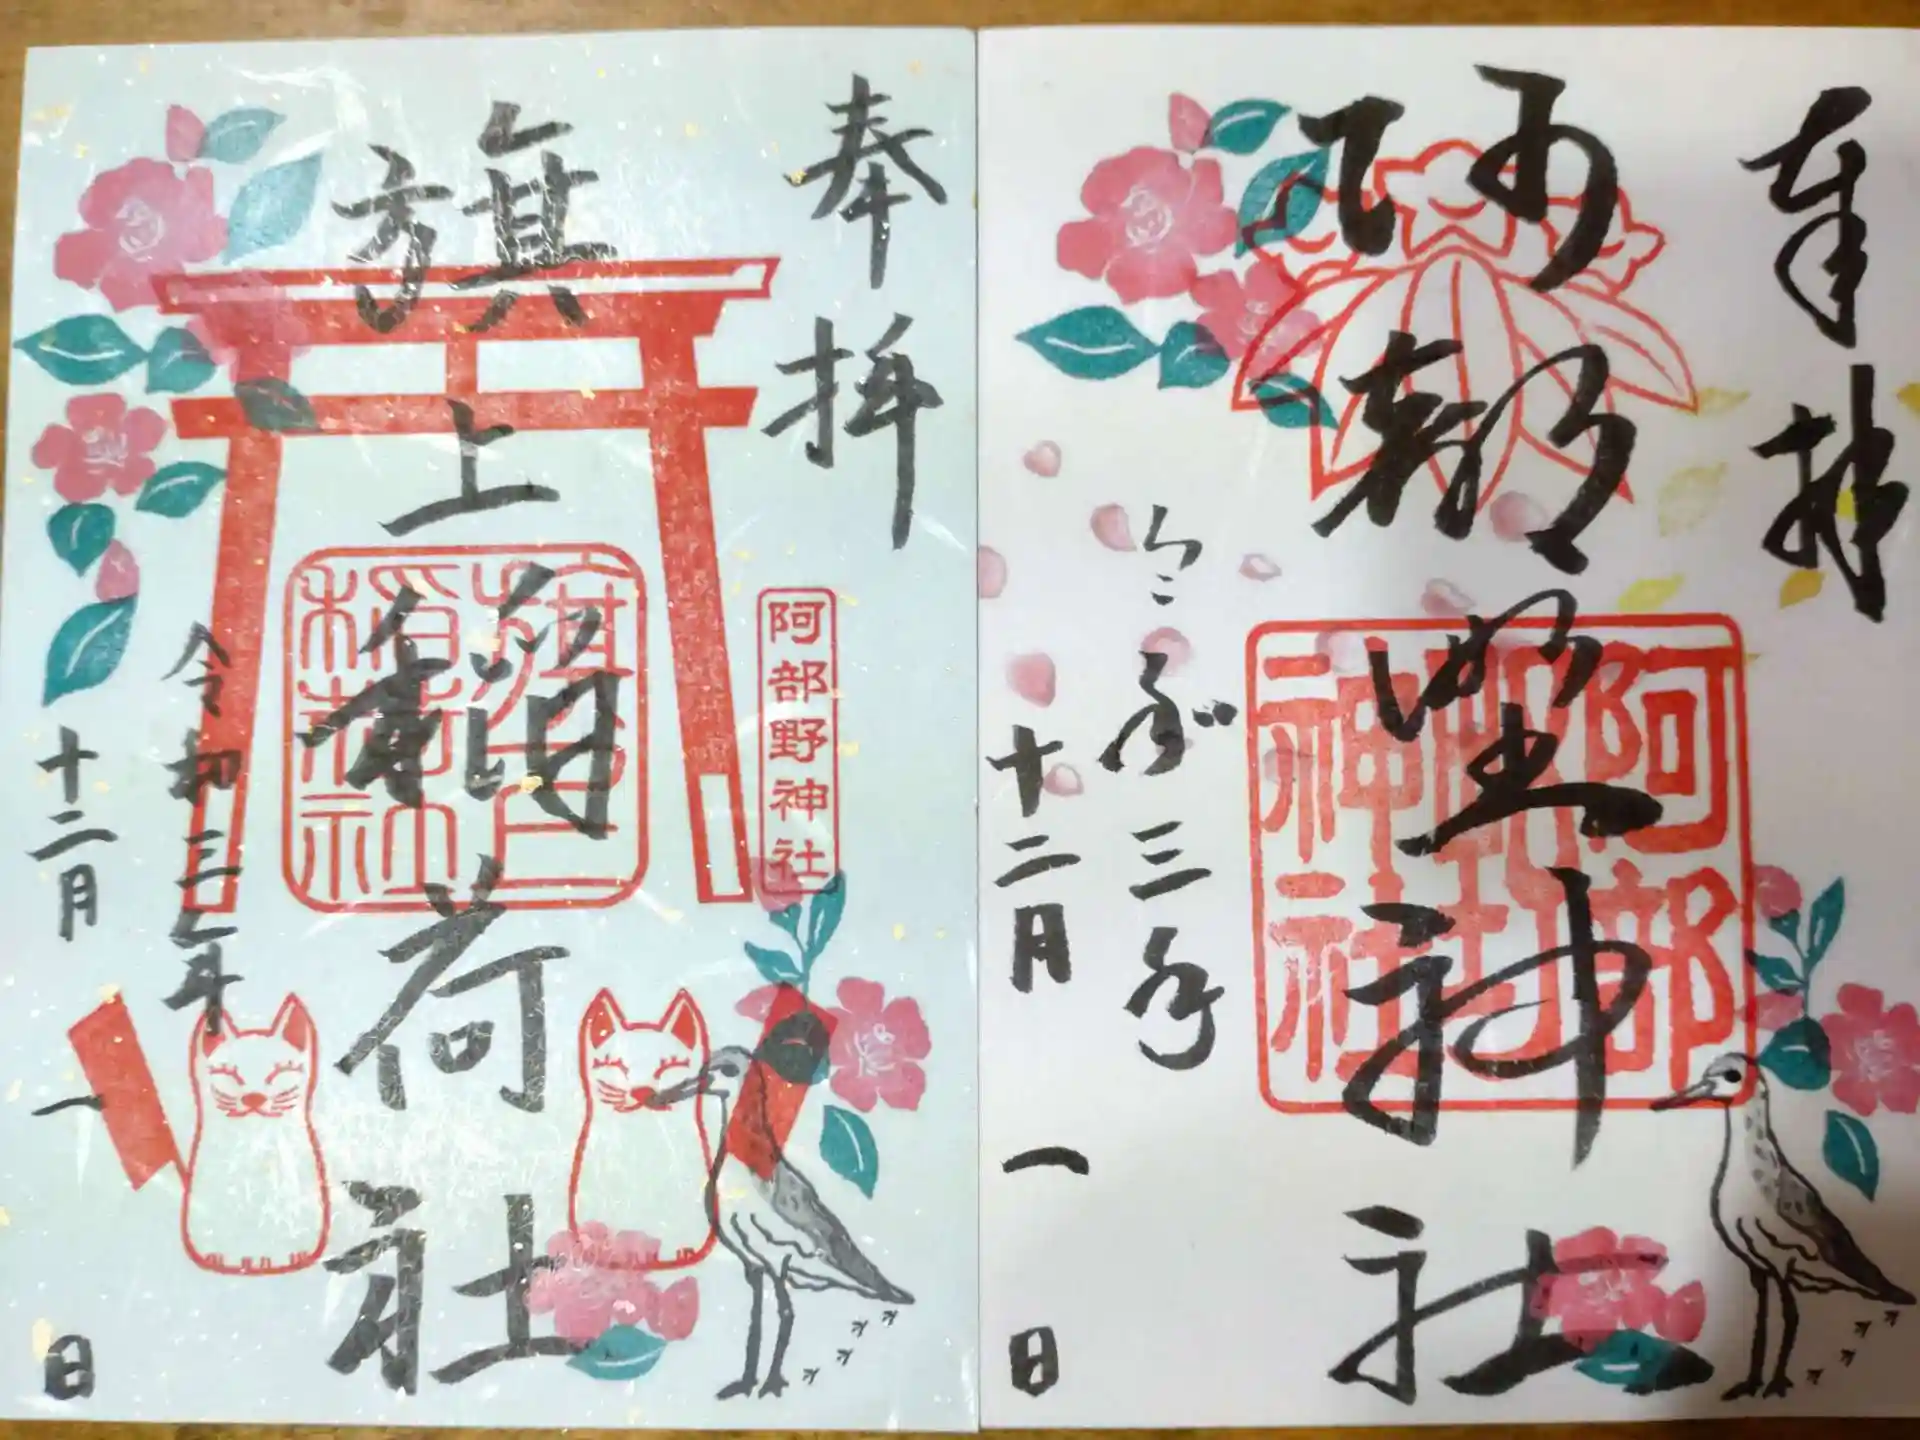 奉拝
阿部野神社
令和三年
十二月一日
阿部野神社
奉拝
旗上稲荷社
旗上稲荷社
阿部野神社
令和三年
十二月一日